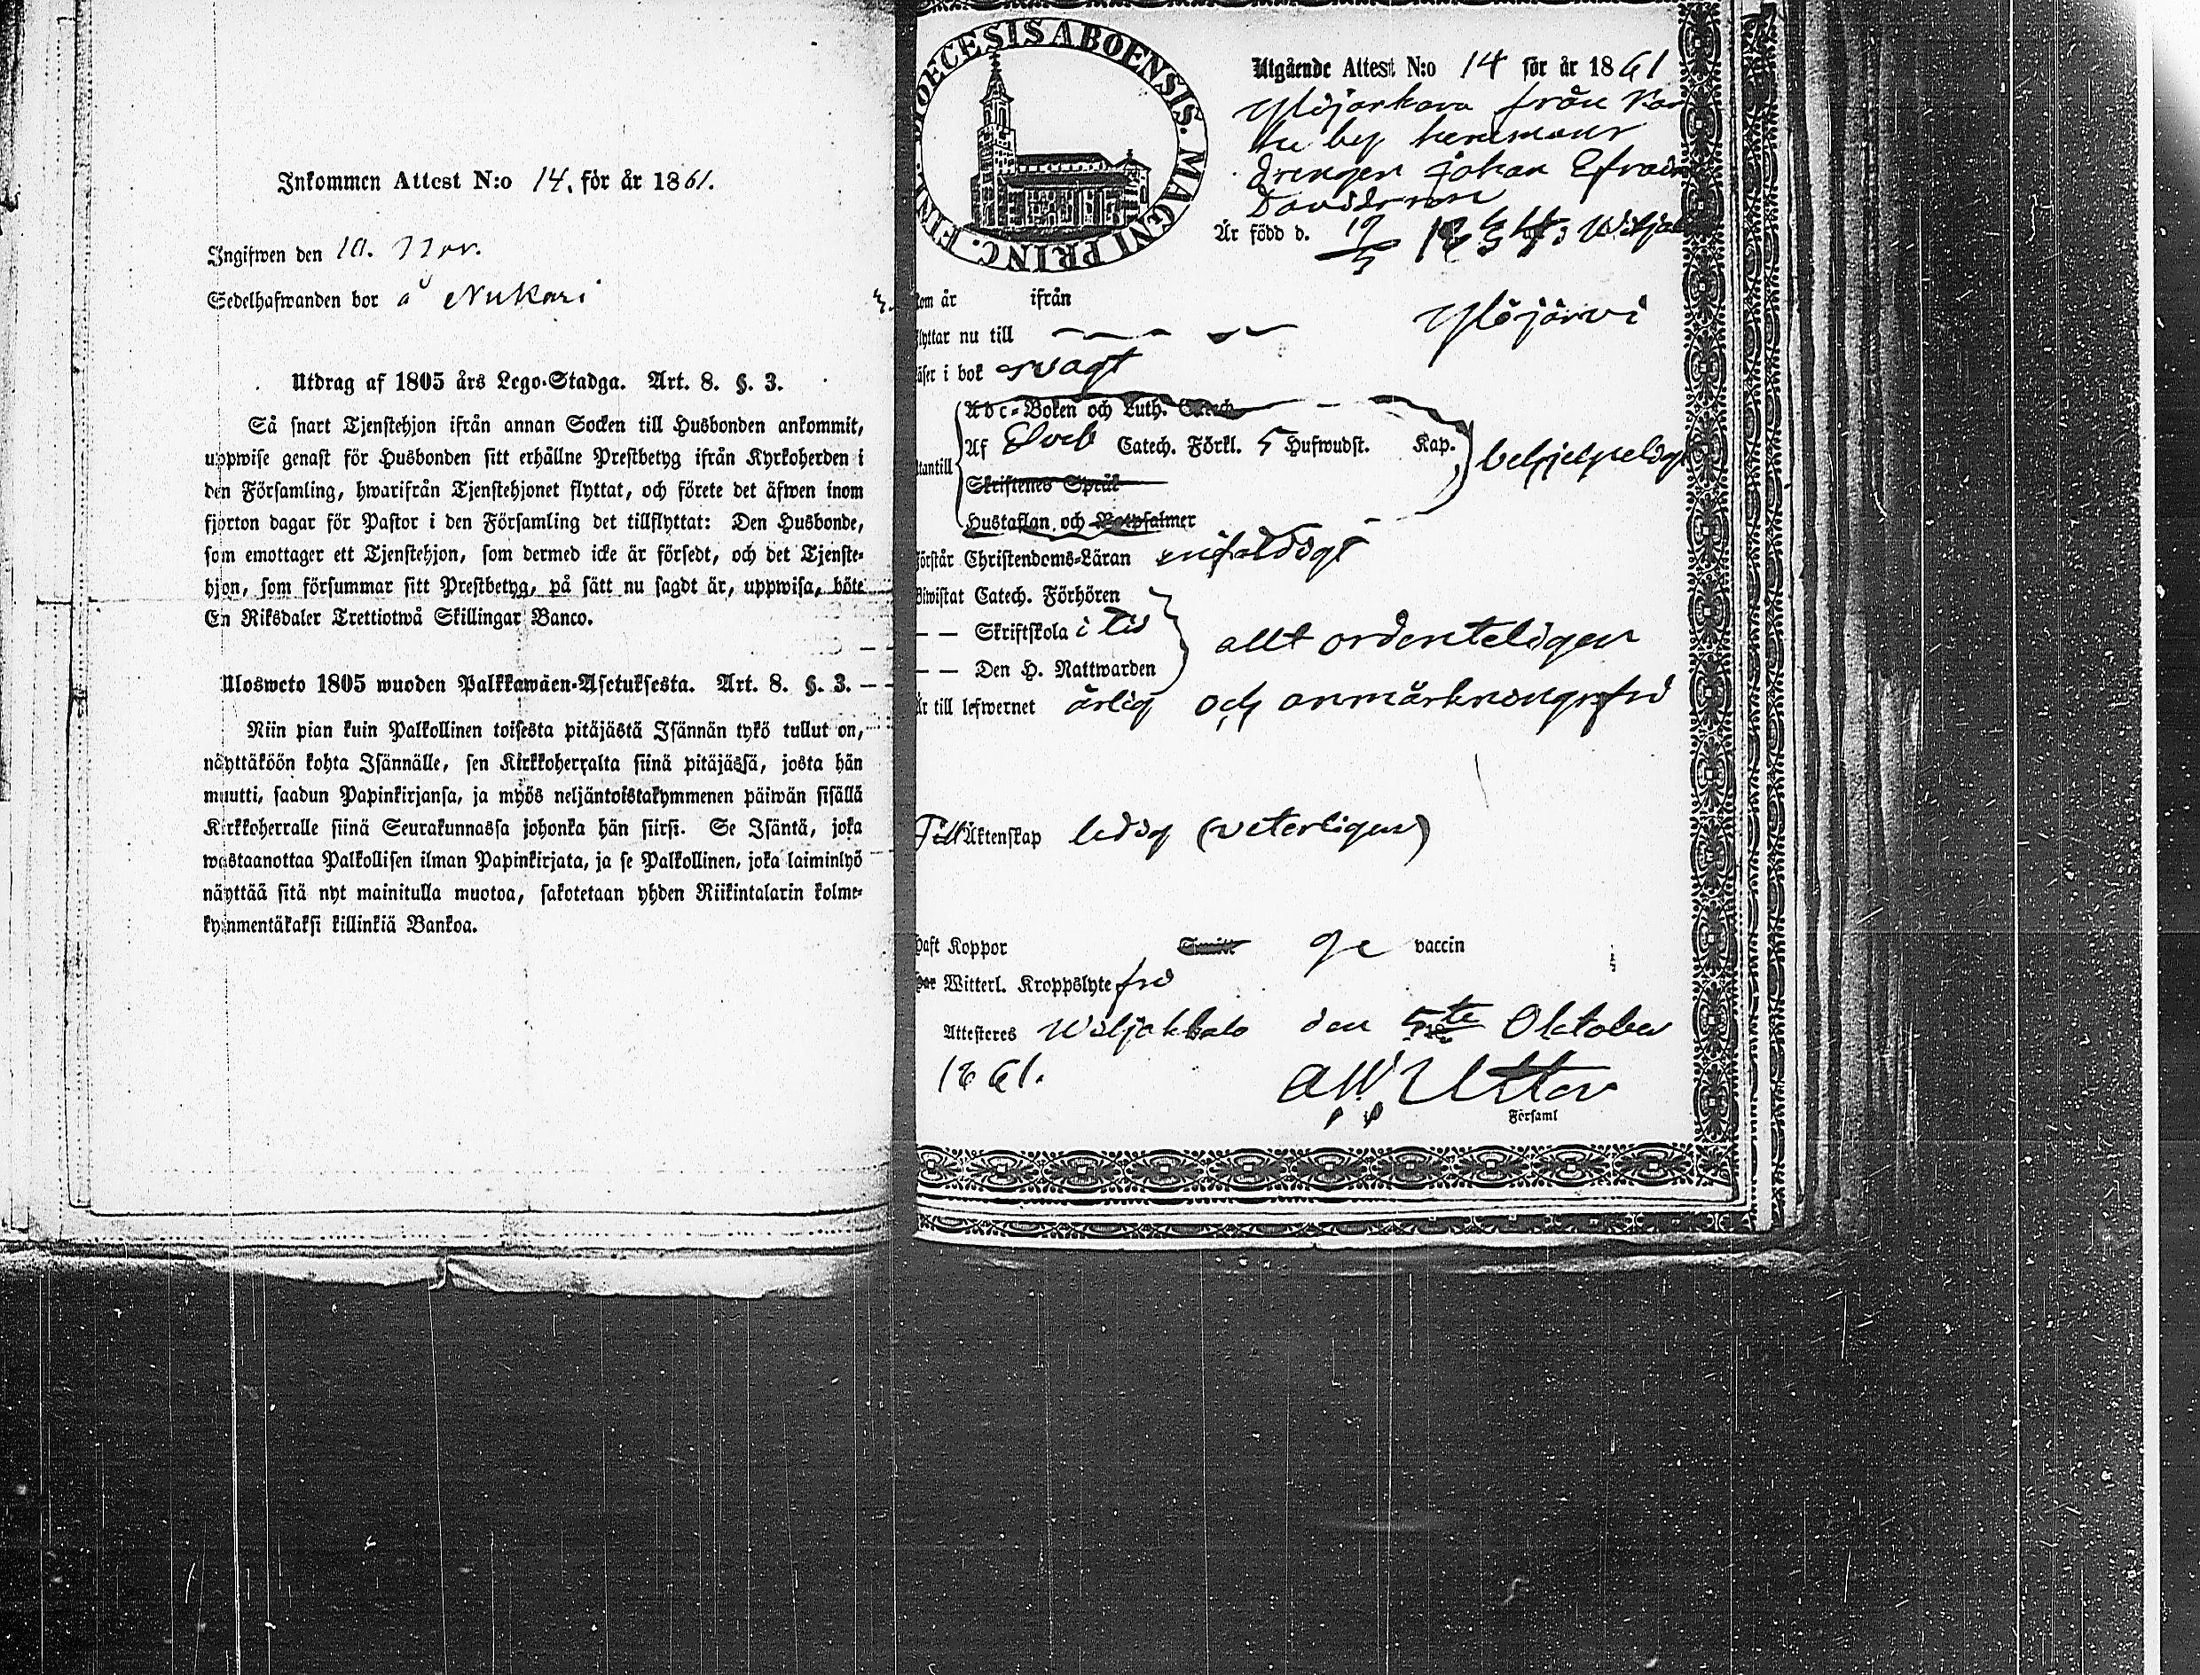 Inkommen Attest N:o 14. för år 1861.
Ingifwen den 10. Nov.
Sedelhafwanden bor å Nukari
Utdrag af 1805 års Lego-Stadga. Art. 8. §. 3.
Så snart Tjenstehjon ifrån annan Socken till Husbonden ankommit,
uppwise genast för Husbonden sitt erhållne Prestbetyg ifrån Kyrkoherden i
den Församling, hwarifrån Tjenstehjonet flyttat, och förete det äfwen inom
fjorton dagar för Pastor i den Församling det tillflyttat: Den Husbonde,
som emottager ett Tjenstehjon, som dermed icke är försedt, och det Tjenste-
hjon, som försummar sitt Prestbetyg, på sätt nu sagdt är, uppwisa, böte
En Riksdaler Trettiotwå Skillingar Banco.
Ulosweto 1805 wuoden Palkkawäen-Asetuksesta. Art. 8. §. 3.
Niin pian kuin Palkollinen toisesta pitäjästä Isännän tykö tullut on,
näyttäköön kohta Isännälle, sen Kirkkoherralta siinä pitäjässä, josta hän
muutti, saadun Papinkirjansa, ja myös neljäntoistakymmenen päiwän sisällä
Kirkkoherralle siinä Seurakunnassa johonka hän siirsi. Se Isäntä, joka
wastaanottaa Palkollisen ilman Papinkirjata, ja se Palkollinen, joka laiminlyö
näyttää sitä nyt mainitulla muotoa, sakotetaan yhden Riikintalarin kolme-
kymmentäkaksi killinkiä Bankoa.
DIOECESIS ABOENSIS. MAGNI PRINC. FINL.
Utgående Attest N:o 14 för år 1861
från
by
drengen Johan Efraim
Davidsson
Är född d. 19
Kom år ifrån
Flyttar nu till Ylöjärvi
Läser i bok svagt
Abc-Boken och Luth. Catech.
Utantill Af Sveb Catech. Förkl. 5 Hufwudst. Kap. behjelpeligt
Skriftenes Språk
Hustaflan och Botpsalmer
Förstår Christendoms-Läran enfaldigt
Biwistat Catech. Förhören
— — Skriftskola i tid allt ordenteligen
— — Den H. Nattwarden
Är till lefwernet ärlig och anmärkningsfri
Till Äktenskap ledig (veterligen)
Haft Koppor ge vaccin
Har Witterl. Kroppslyte fri
Attesteres Wiljakkala den 5te Oktober
1861.
AW Utter
Församl